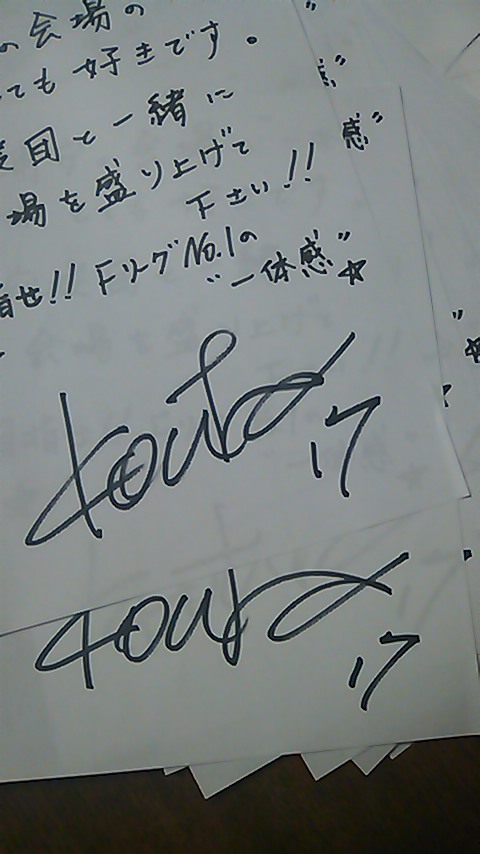 の会場の
ても好きです。
団と一緒に
場を盛り上げて
下さい!!
指せ!! FリーグNo.1の
"一体感"☆
kouta
17
kouta
17
"
感"
"
☆